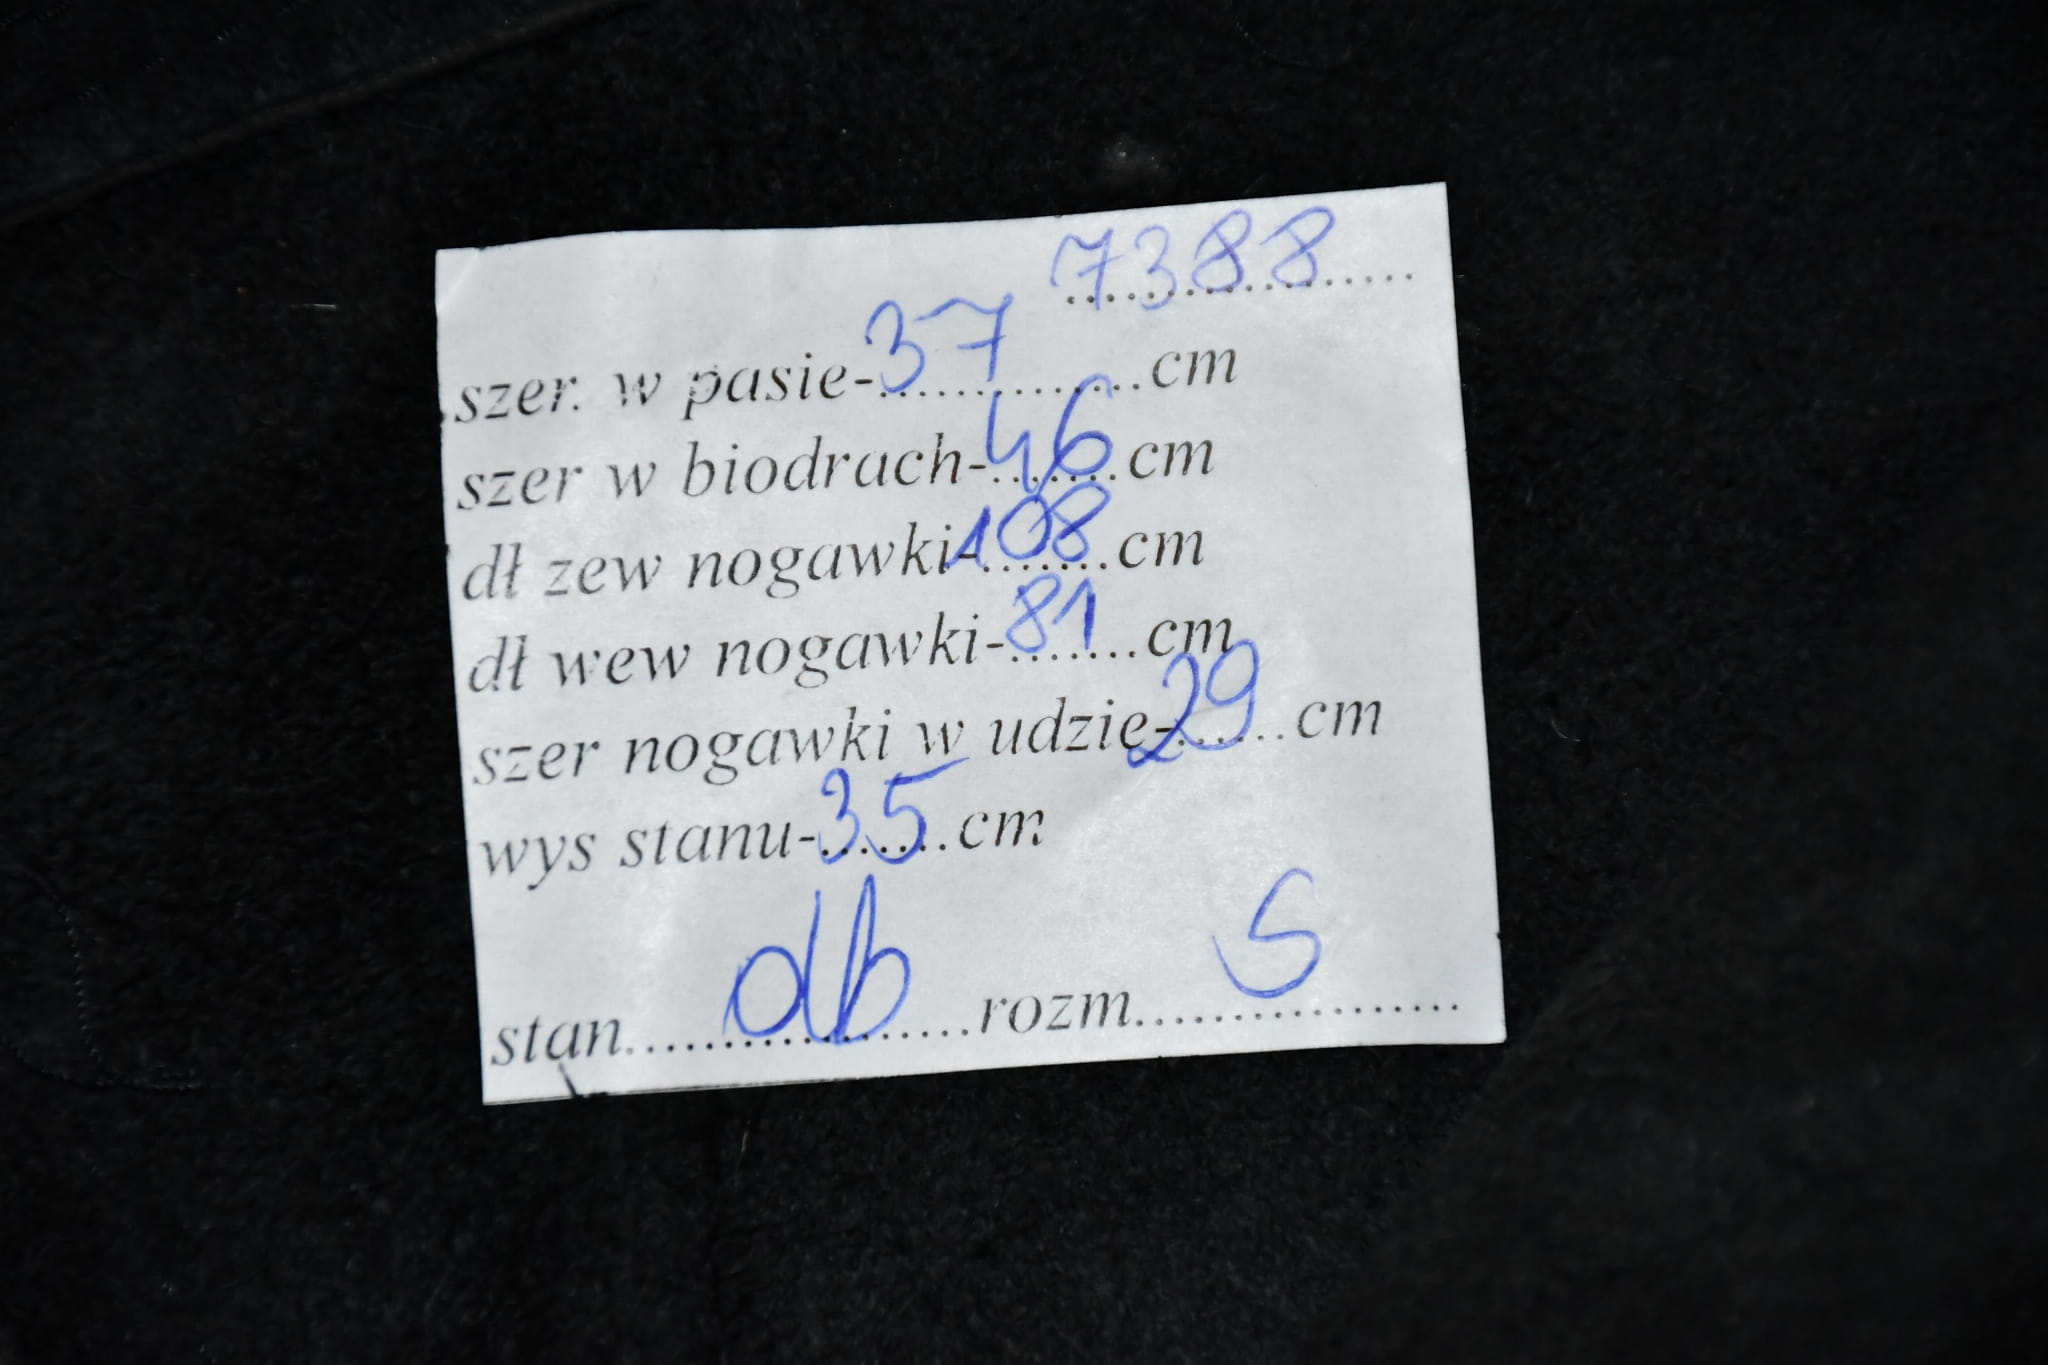 7388
szer. w pasie-37cm
szer w biodrach-46cm
dł zew nogawki-108cm
dł wew nogawki-81cm
szer nogawki w udzie-29cm
wys stanu-35cm
stan db rozm S